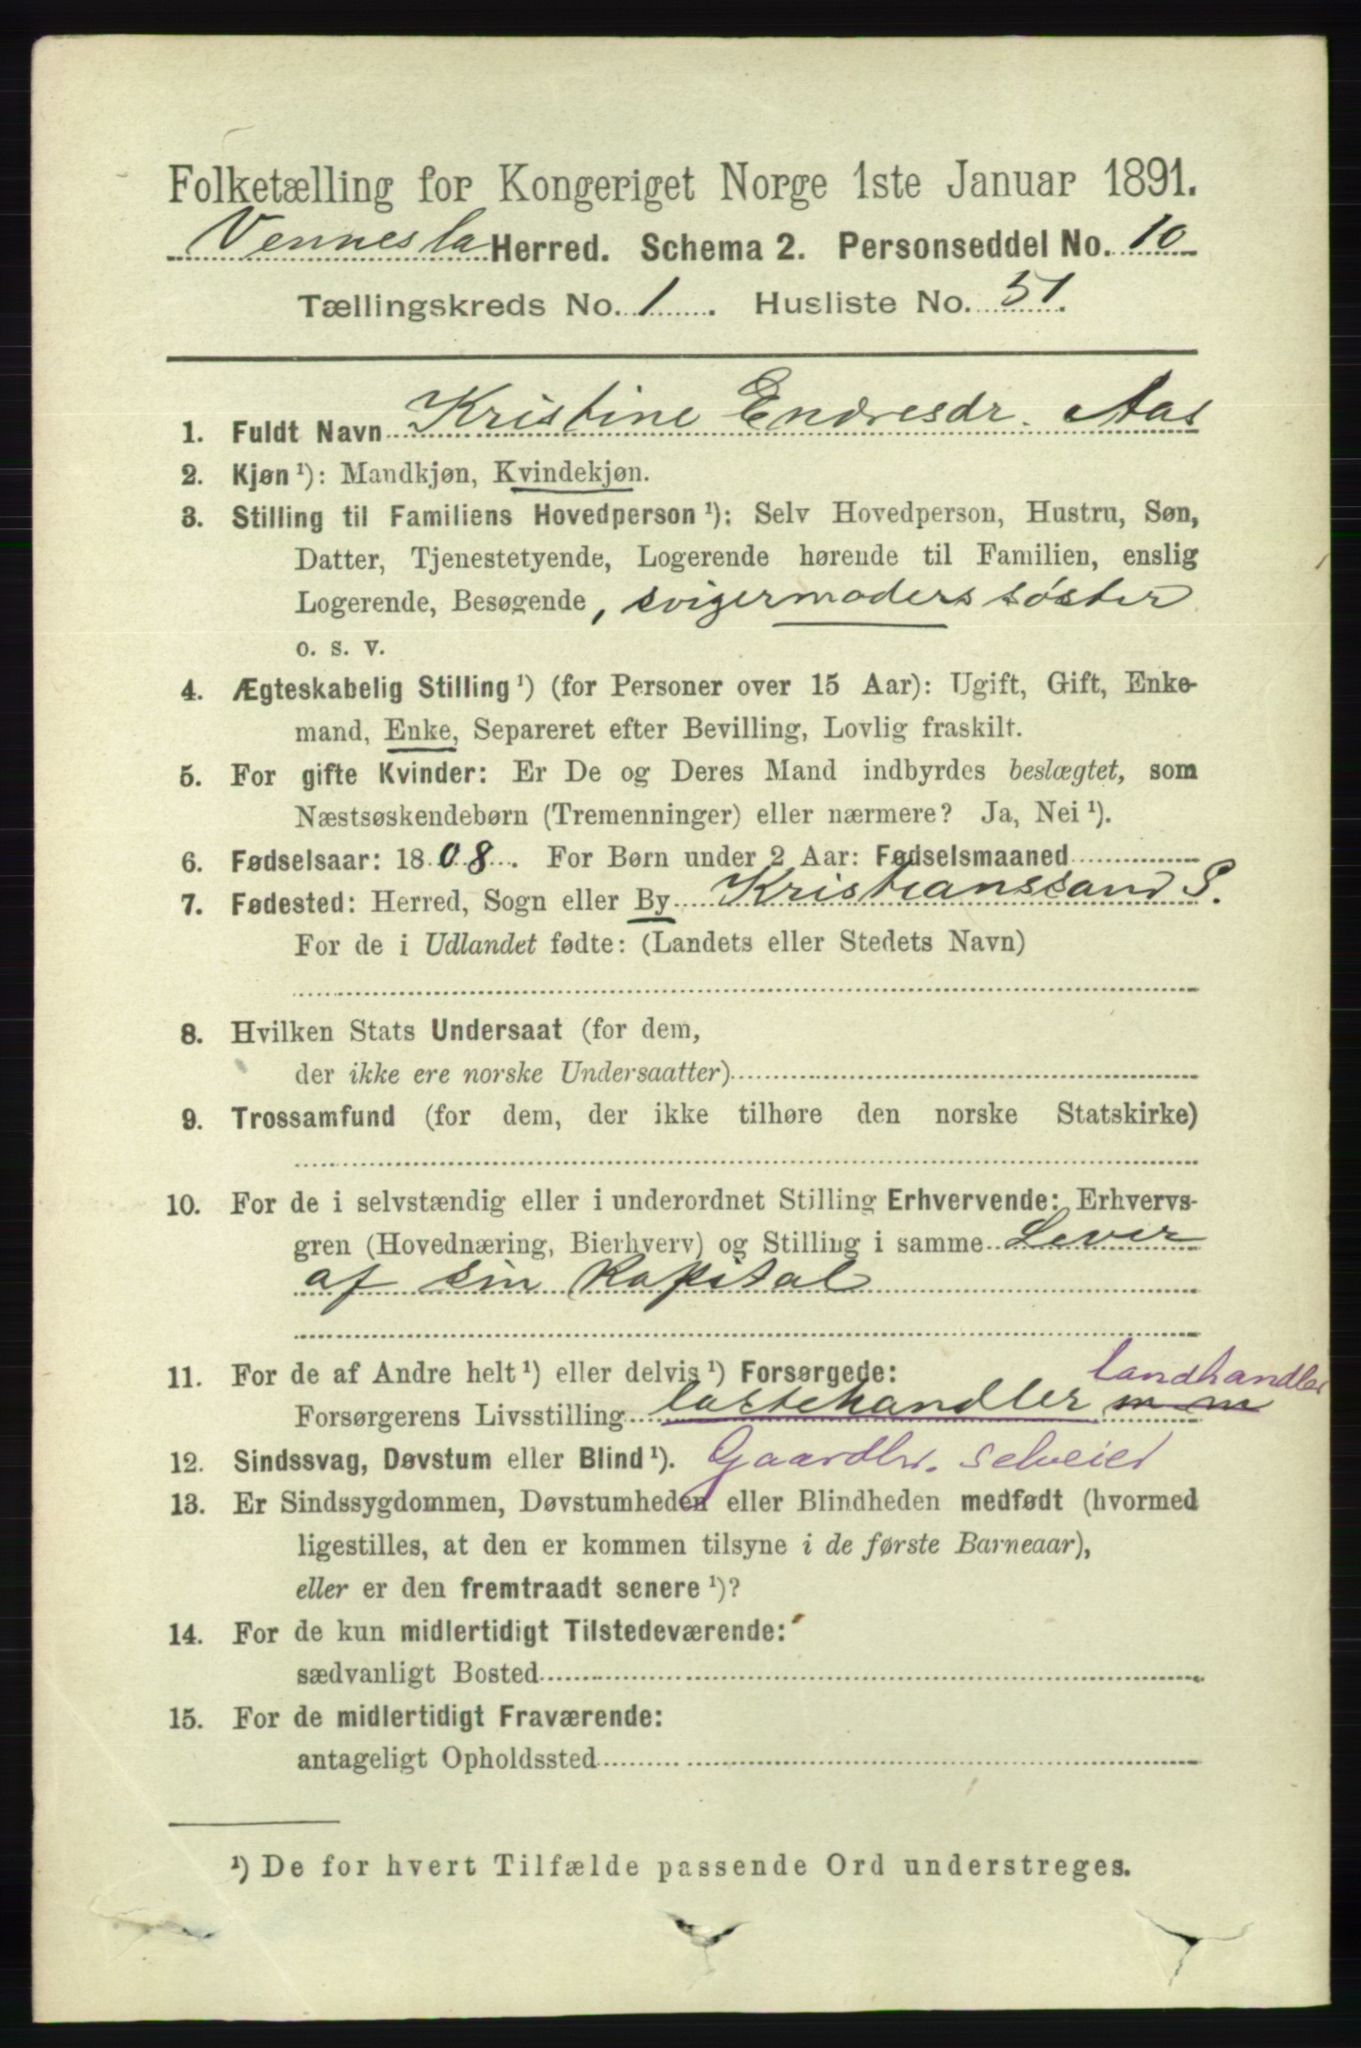 Folketælling for Kongeriget Norge 1ste Januar 1891.
Vennesla Herred. Schema 2. Personseddel No. 10
Tællingskreds No. 1. Husliste No. 51.
1. Fuldt Navn Kristine Endresdr. Aas
2. Kjøn ¹): Mandkjøn, Kvindekjøn.
3. Stilling til Familiens Hovedperson ¹): Selv Hovedperson, Hustru, Søn,
Datter, Tjenestetyende, Logerende hørende til Familien, enslig
Logerende, Besøgende, svigermoders søster
o. s. v.
4. Ægteskabelig Stilling ¹) (for Personer over 15 Aar): Ugift, Gift, Enke-
mand, Enke, Separeret efter Bevilling, Lovlig fraskilt.
5. For gifte Kvinder: Er De og Deres Mand indbyrdes beslægtet, som
Næstsøskendebørn (Tremenninger) eller nærmere? Ja, Nei ¹).
6. Fødselsaar: 1808. For Børn under 2 Aar: Fødselsmaaned
7. Fødested: Herred, Sogn eller By Kristianssand S.
For de i Udlandet fødte: (Landets eller Stedets Navn)
8. Hvilken Stats Undersaat (for dem,
der ikke ere norske Undersaatter)
9. Trossamfund (for dem, der ikke tilhøre den norske Statskirke)
10. For de i selvstændig eller i underordnet Stilling Erhvervende: Erhvervs-
gren (Hovednæring, Bierhverv) og Stilling i samme Lever
af sin Kapital
11. For de af Andre helt ¹) eller delvis ¹) Forsørgede: landhandler
Forsørgerens Livsstilling lastehandler m m
12. Sindssvag, Døvstum eller Blind ¹). Gaardbr. selveier
13. Er Sindssygdommen, Døvstumheden eller Blindheden medfødt (hvormed
ligestilles, at den er kommen tilsyne i de første Barneaar),
eller er den fremtraadt senere ¹)?
14. For de kun midlertidigt Tilstedeværende:
sædvanligt Bosted
15. For de midlertidigt Fraværende:
antageligt Opholdssted
¹) De for hvert Tilfælde passende Ord understreges.